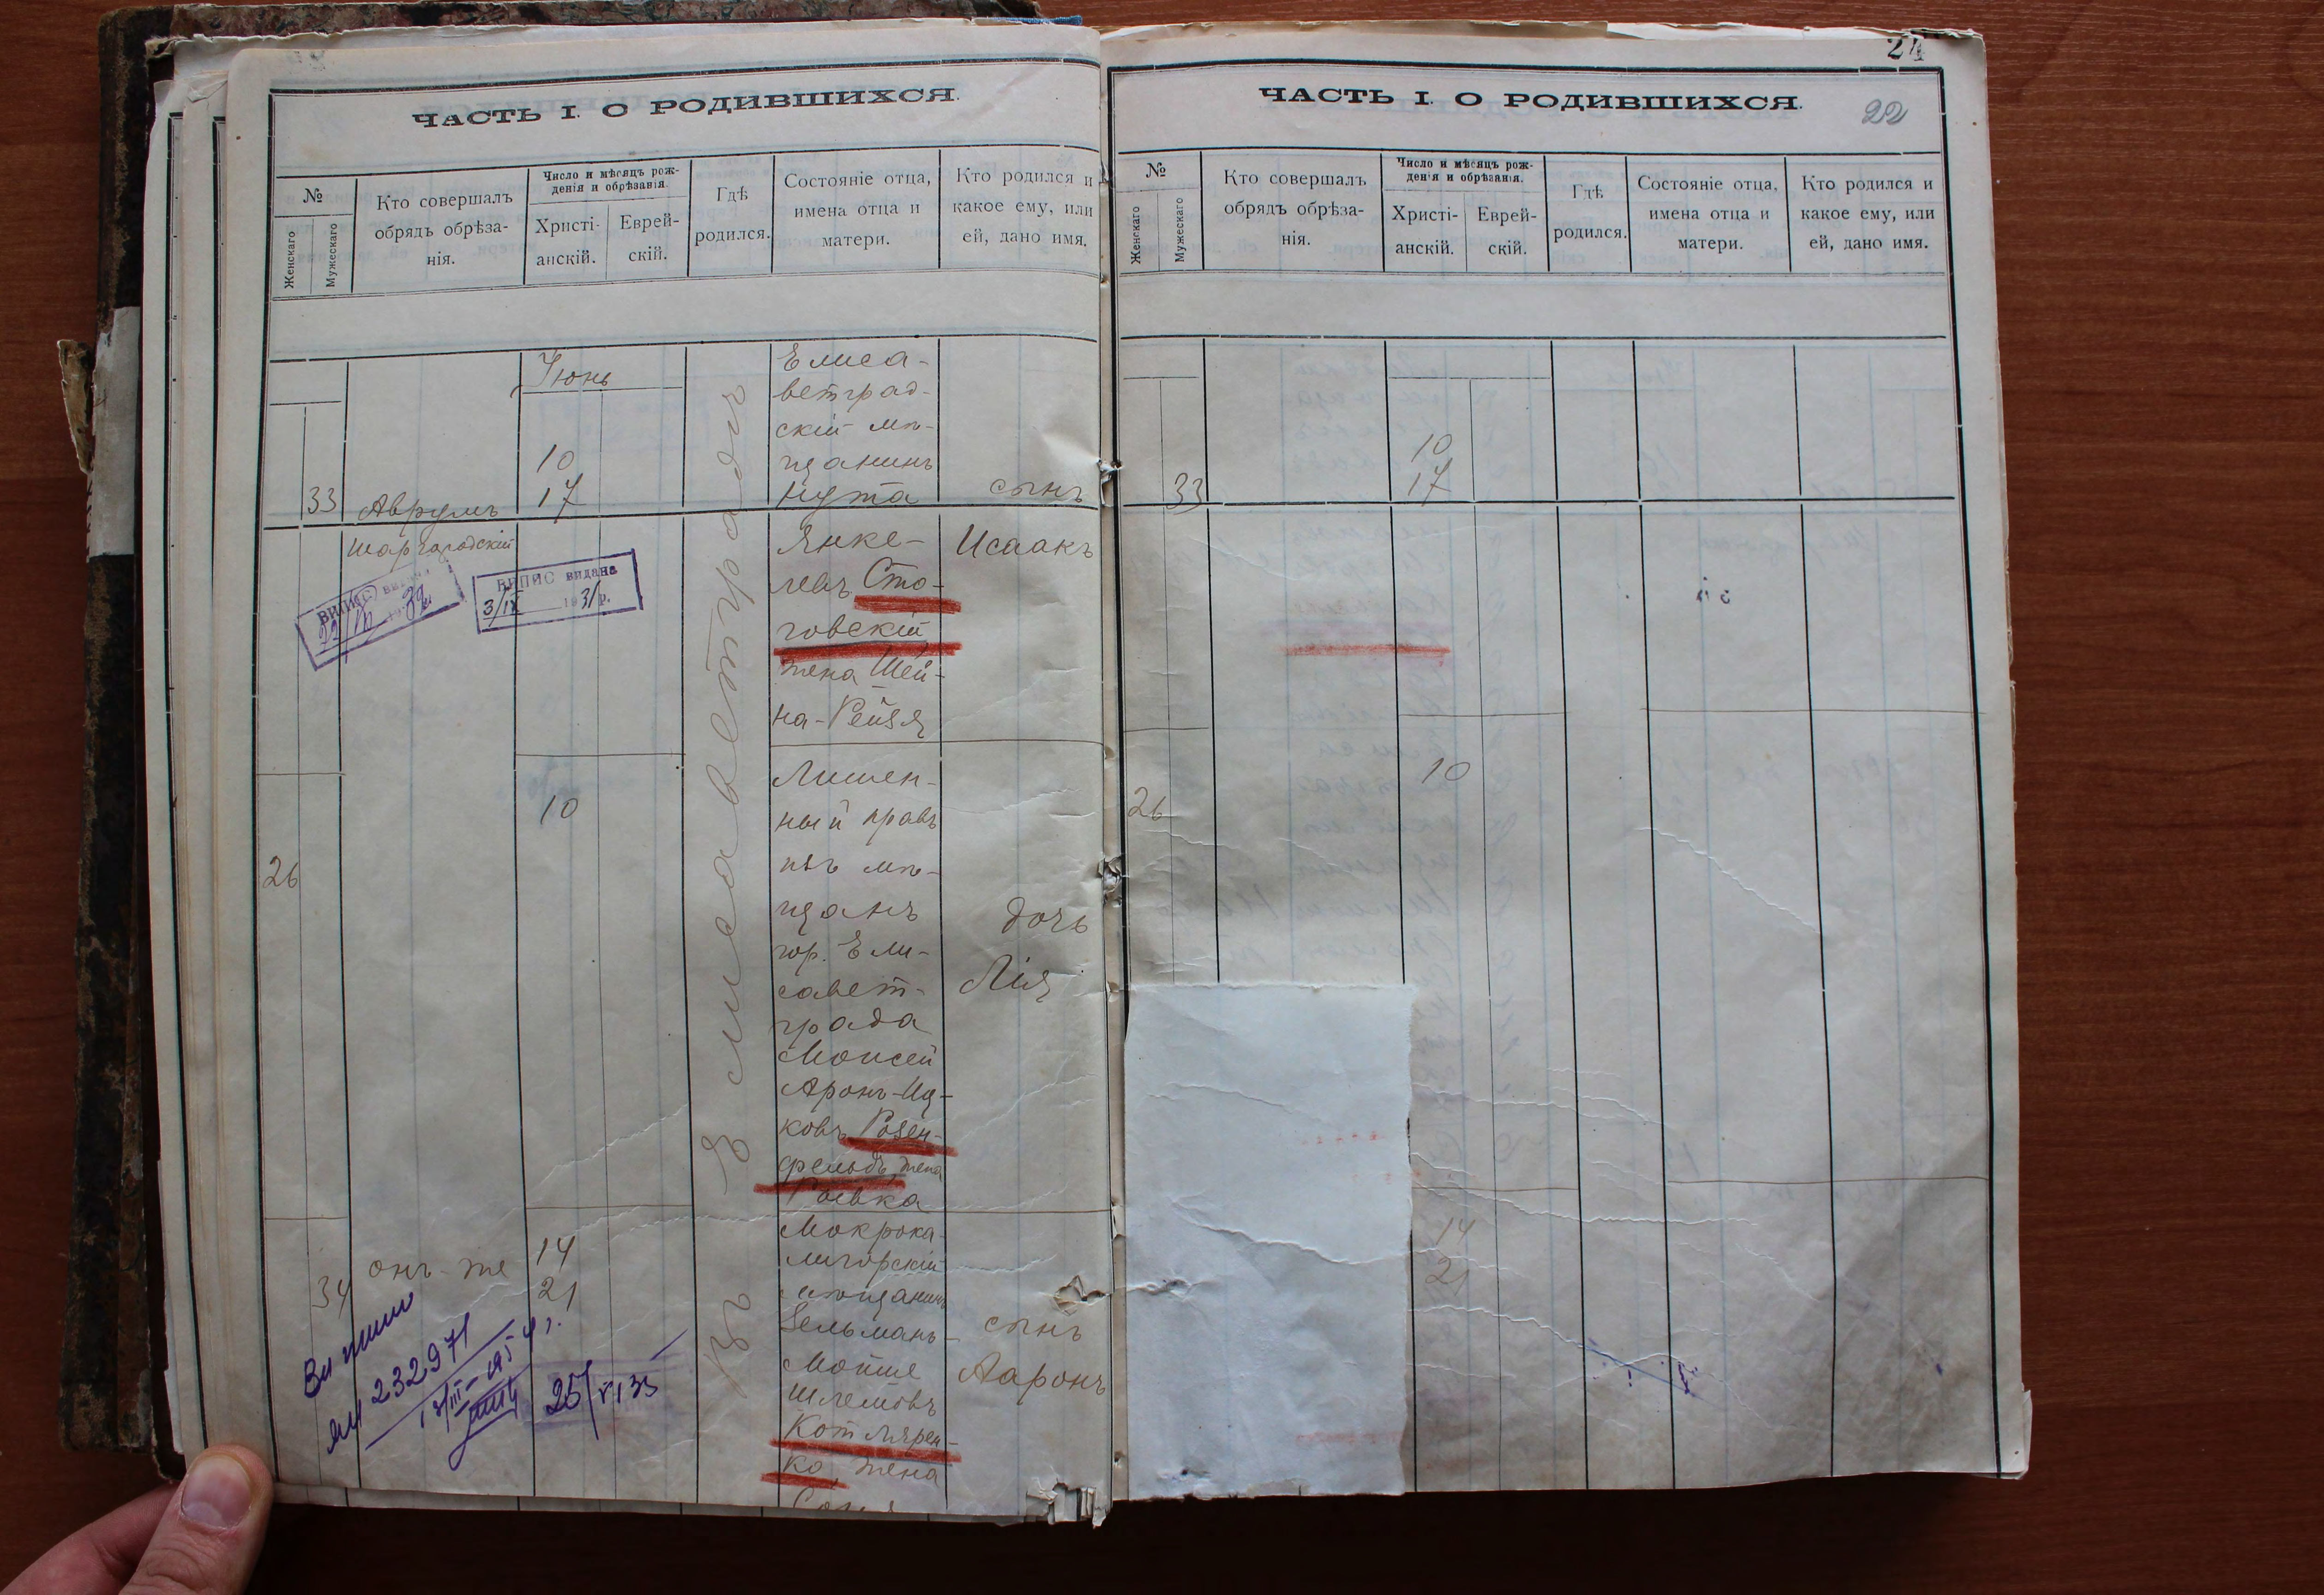 ЧАСТЬ I. О РОДИВШИХСЯ.
№
Женскаго
Мужескаго
Кто совершалъ
обрядъ обрѣза-
нія.
Число и мѣсяцъ рож-
денія и обрѣзанія.
Христі-
анскій.
Еврей-
скій.
Гдѣ
родился.
Состояніе отца,
имена отца и
матери.
Кто родился и
какое ему, или
ей, дано имя.
Іюнь
33
Аврумъ
Шаргородскій
10
17
Въ Елисаветградѣ
Елиса-
ветград-
скій мѣ-
щанинъ
Нута
Янке-
левъ Сто-
говскій
жена Шей-
на-Рейзя
сынъ
Исаакъ
ВИПИС видана
ВИПИС видана
3/IX 1931 р.
26
10
Лишен-
ный правъ
изъ мѣ-
щанъ
гор. Ели-
савет-
града
Моисей
Аронъ-Иц-
ковъ Розен-
фельдъ, жена
Ривка
дочь
Лія
34
онъ-же
14
21
Мокрока-
лигорскій
мѣщанинъ
Зельманъ-
Мойше
Шлемовъ
Котлярен-
ко, жена
Соня
сынъ
Ааронъ
232971
25/VI 35
24
ЧАСТЬ I. О РОДИВШИХСЯ.
22
№
Женскаго
Мужескаго
Кто совершалъ
обрядъ обрѣза-
нія.
Число и мѣсяцъ рож-
денія и обрѣзанія.
Христі-
анскій.
Еврей-
скій.
Гдѣ
родился.
Состояніе отца,
имена отца и
матери.
Кто родился и
какое ему, или
ей, дано имя.
33
10
17
26
10
14
21